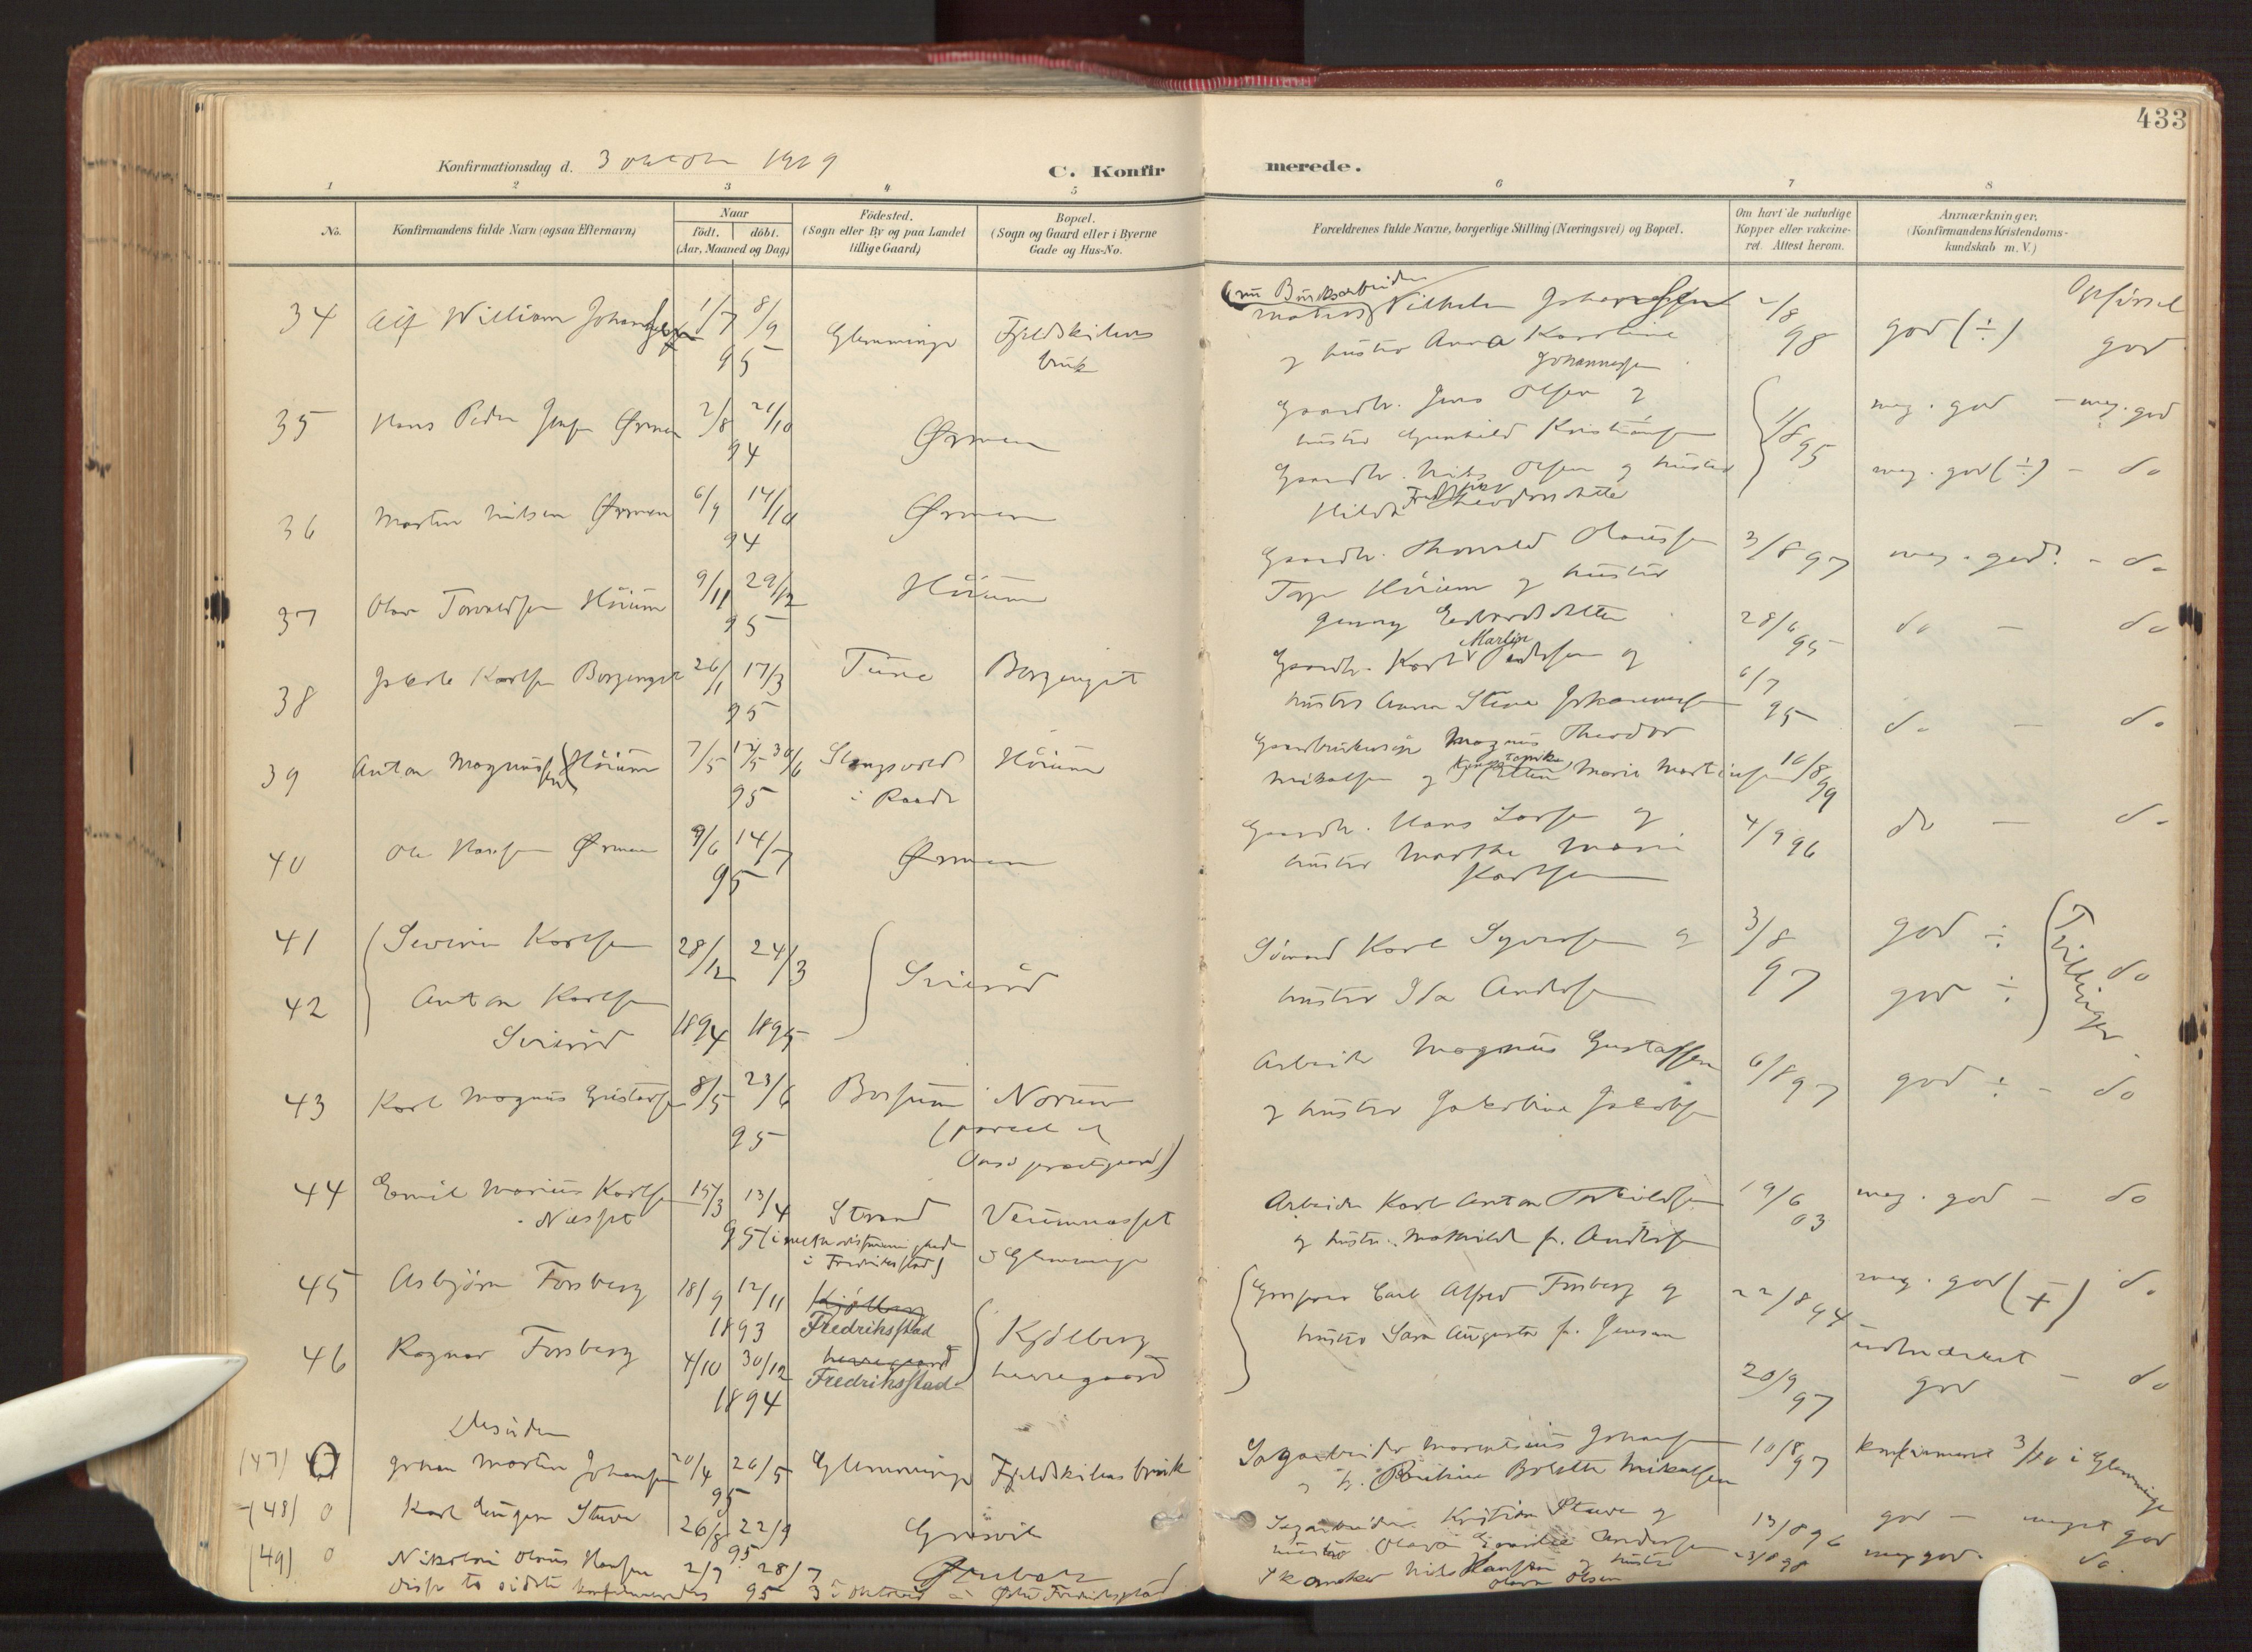 433
Konfirmationsdag d. 3 oktober 1909
C. Konfirmerede.
1 2 3 4 5 6 7 8
No.
Konfirmandens fulde Navn (ogsaa Efternavn)
Naar
födt. döbt.
(Aar, Maaned og Dag)
Födested.
(Sogn eller By og paa Landet
tillige Gaard)
Bopæl.
(Sogn og Gaard eller i Byerne
Gade og Hus-No.
Forældrenes fulde Navne, borgerlige Stilling (Næringsvei) og Bopæl.
Om havt de naturlige
Kopper eller vakcine-
ret. Attest herom.
Anmærkninger.
(Konfirmandens Kristendoms-
kundskab m. V.)
Opførsel
34 Alf William 1/7 8/9 Glemminge Fjeldskilens
95 bruk
Matros Vilhelm
og hustru Anna Karoline
Johannessen
2/8 98 god (÷) god
35 Hans Peder Jensen Ørmen 2/8 21/10
94 Ørmen
Gaardbr. Jens Olsen og
hustru Gunhild Kristiansen
1/8 95 meg. god — meg. god
36 Martin Nilsen Ørmen 6/9 14/10
94 Ørmen
Gaardbr. Nils Olsen og hustru
Hilda
meg. god (÷) - do
37 Olav Torvaldsen Höium 9/11 29/12
95 Höium
Gaardbr. Thorvald Olaussen
Höium og hustru
Jenny Edvardsdatter
3/8 97 meg. god - do
38 Jakob Karlsen Borgenget 26/1 17/3
95 Tune Borgenget
Gaardbr. Karl Martin Pedersen og
hustru Anna Stine Johannessen
28/6 95 do — do
39 Anton Magnussen Höium 7/5 30/6
95 i Raade Höium
Magnus Theodor
Mikalsen og Marie Martinsen
6/7 95 do — do
16/8 99
40 Ole Hansen Ørmen 9/6 14/7
95 Ørmen
Gaardbr. Hans Larsen og
hustru Marthe Marie
Karlsen
4/9 96 do — do
41 Severin Karlsen 28/12 24/3
42 Anton Karlsen
1894 1895
Sömand Karl Syversen og
hustru Ida Andersen
3/8 97 god ÷ do
god ÷
Tvillinger
43 Karl Magnus Gustavsen 8/5 23/6 Norum
95 (parcel af
Onsö prestegaard)
Arbeider Magnus Gustafsen
og hustru Jakobine Jakobsen
6/8 97 god ÷ - do
44 Emil Marius Karlsen 15/3 13/4 Strand
Næsset 95
i Fredriksstad) i Glemminge
Arbeider Karl Anton Torkildsen
og hustru Mathilde f. Andersen
19/6 03 meg. god — do
45 Asbjörn Forsberg 18/9 12/11 Kjölberg
1893 Fredriksstad
46 Ragnar Forsberg 4/10 30/12 herregaard
1894 Fredriksstad
Kjölberg
herregaard
Carl Alfred Forsberg og
hustru Sara Augusta f. Jensen
22/8 94 meg. god (+) do
udmerket
20/9 97 god — do
Desuden
(47) 0 Johan Martin Johansen 20/4 26/5 Glemminge Fjeldskilens bruk
95
Sagarbeider Johansen
og h. Bolette Mikalsen
10/8 97 konfirmeret 3/10 i Glemminge
(48) 0 Karl Eugen Stene 26/8 22/9
95 Gresvik
Sagarbeider Kristian Stene og
hustru Olava Emilie Andersen
13/8 96 god — meget god
(49) 0 Nikolai Olaus Hansen 2/7 28/7
95
Nils Hansen og hustru
Olava Olsen
23/8 98 meg. god do.
Disse to sidste konfirmeredes 3 oktober i Østre Fredriksstad